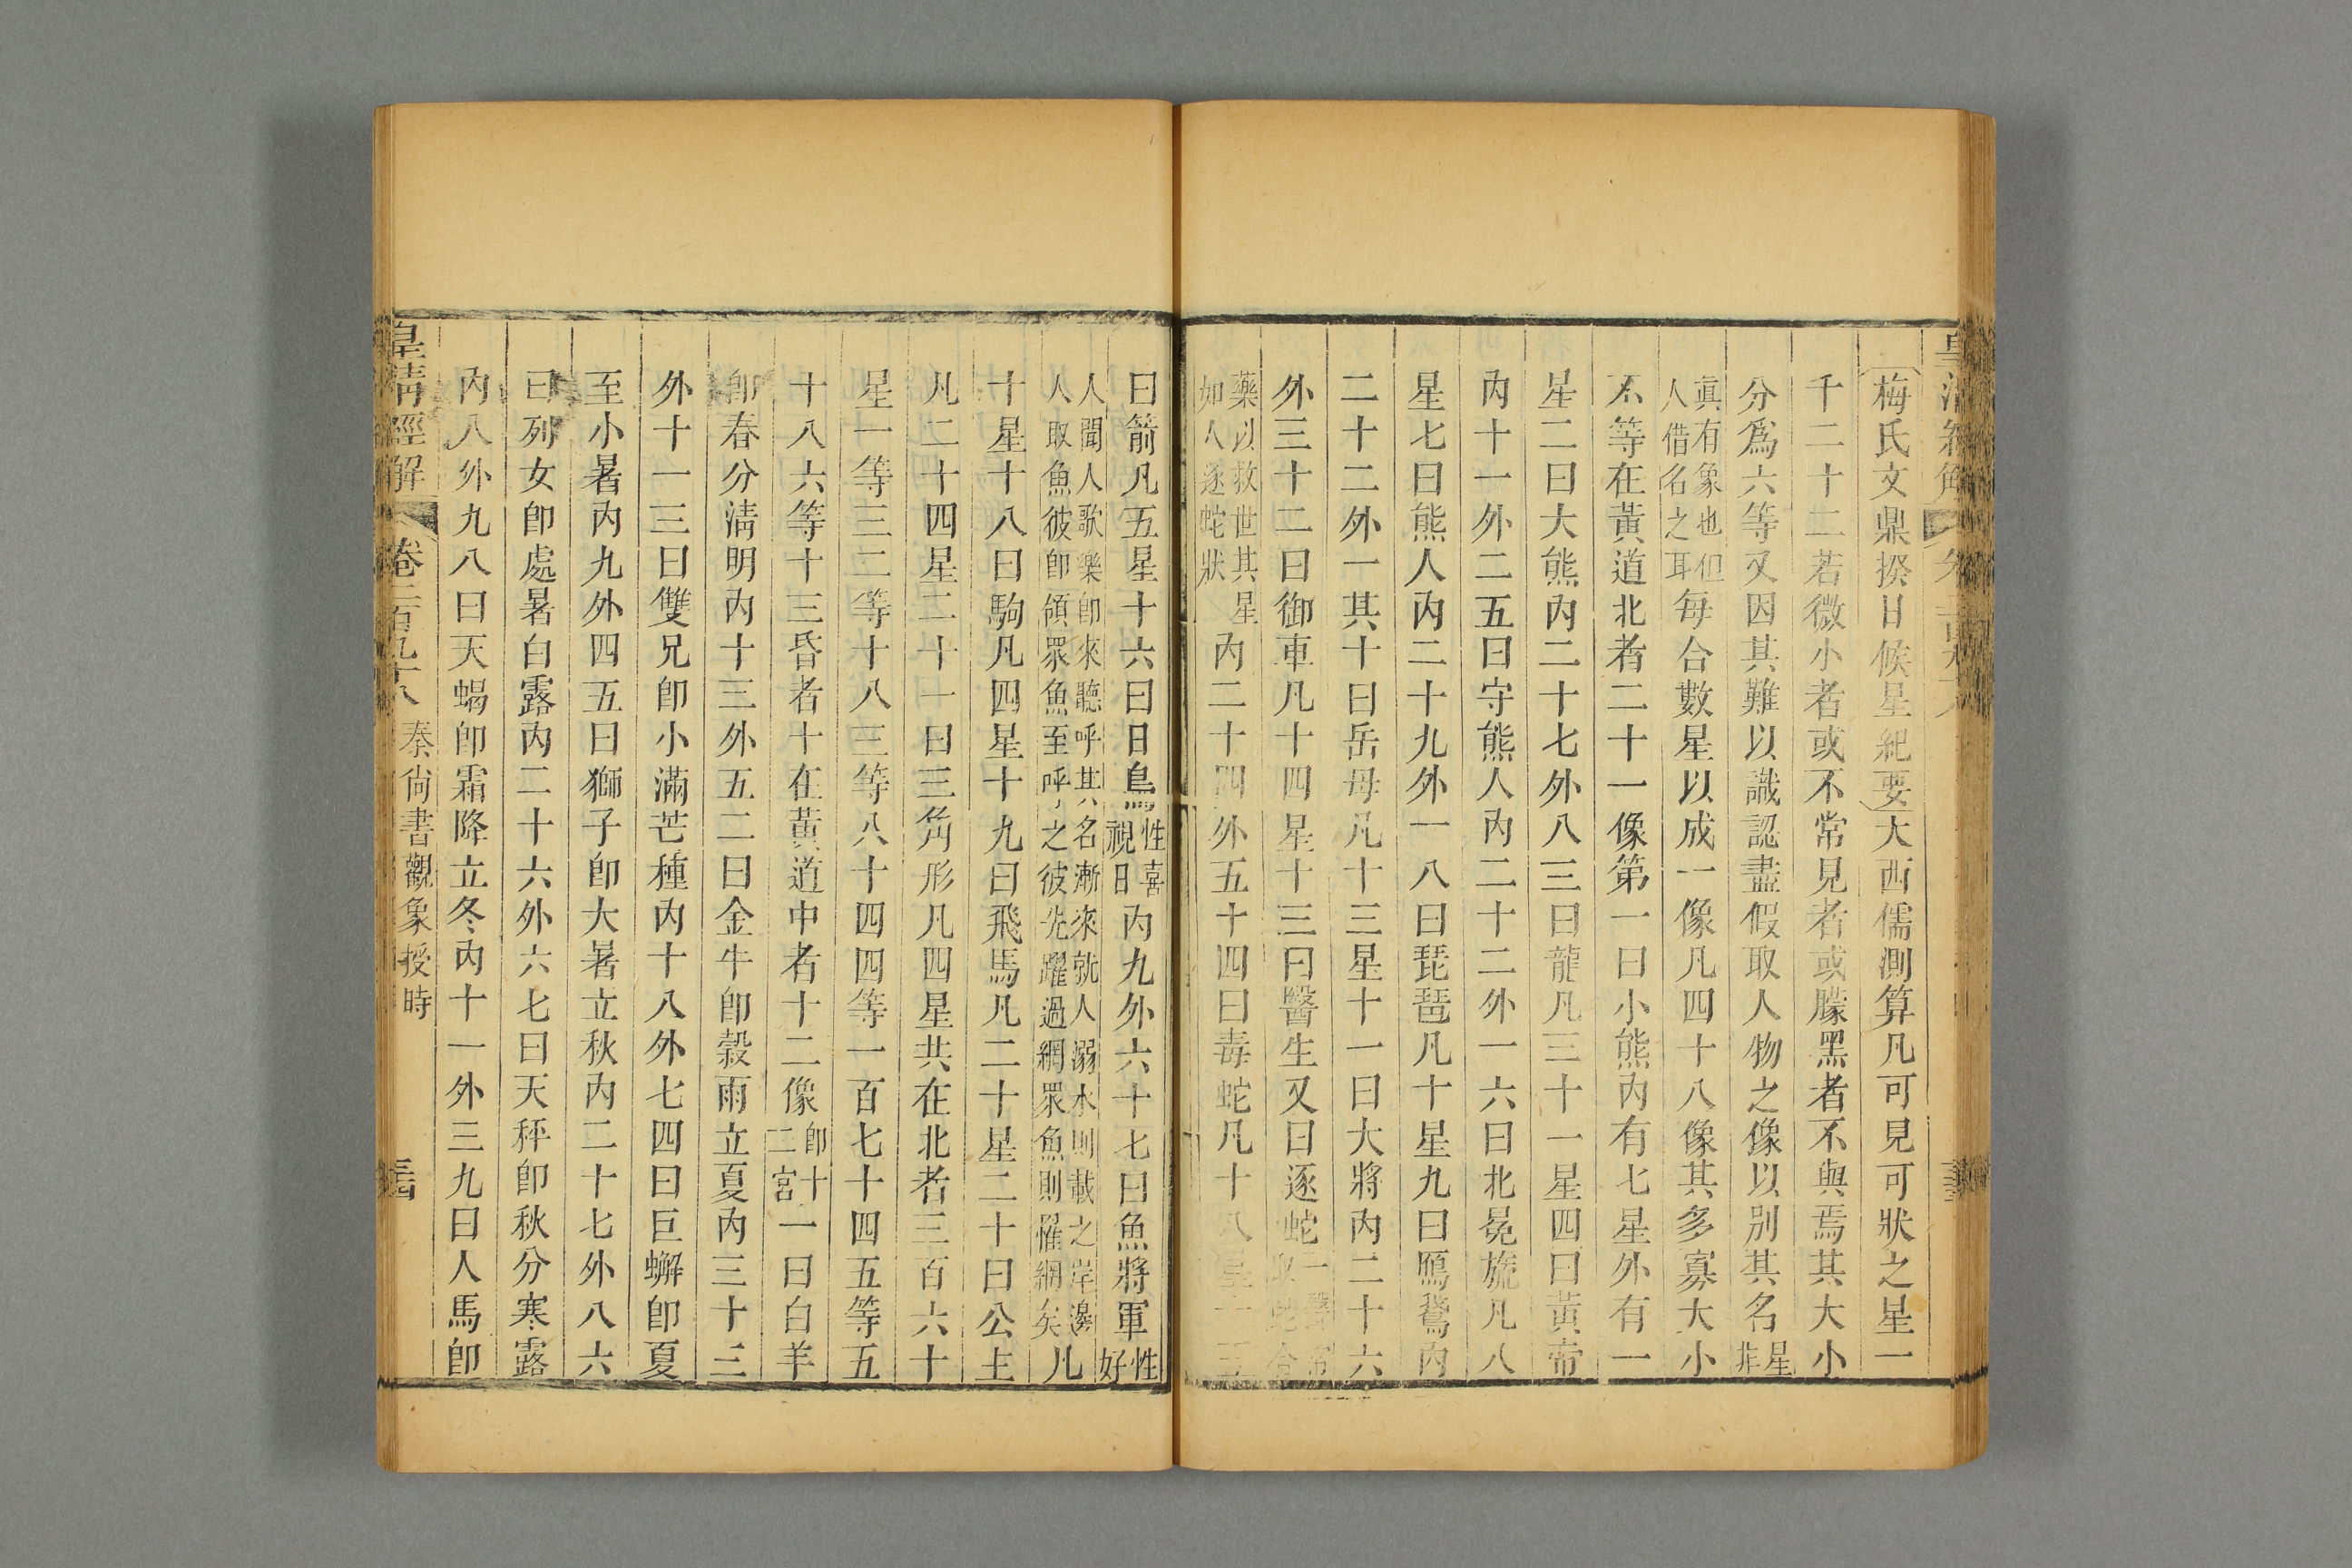 梅氏文鼎揆日候星紀要大西儒測算凡可見可狀之星一
千二十二若微小者或不常見者或朦黑者不與焉其大小
分爲六等又因其難以識認盡假取人物之像以別其名星非
眞有象也但人借名之耳每合數星以成一像凡四十八像其多寡大小
不等在黃道北者二十一像第一曰小熊內有七星外有一
星二曰大熊內二十七外八三曰龍凡三十一星四曰黃帝
內十一外二五曰守熊人內二十二外一六曰北冕旒凡八
星七曰熊人內二十九外一八曰琵琶凡十星九曰鴈鵞內
二十二外一其十曰岳母凡十三星十一曰大將內二十六
外三十二曰御車凡十四星十三曰醫生又曰逐蛇一醫常取蛇合
藥以救世其星如人逐蛇狀內二十四外五十四曰毒蛇凡十八星十五
曰箭凡五星十六曰日鳥性喜視日內九外六十七曰魚將軍性好
人聞人歌樂卽來聽呼其名漸來就人溺水則載之岸邊人取魚彼卽領眾魚至呼之彼先躍過網眾魚則罹網矣凡
十星十八曰駒凡四星十九曰飛馬凡二十星二十曰公主
凡二十四星二十一曰三角形凡四星共在北者三百六十
星一等三二等十八三等八十四四等一百七十四五等五
十八六等十三昏者十在黃道中者十二像卽十二宮一曰白羊
卽春分清明內十三外五二曰金牛卽穀雨立夏內三十三
外十一三曰雙兄卽小滿芒種內十八外七四曰巨蠏卽夏
至小暑內九外四五曰獅子卽大暑立秋內二十七外八六
曰列女卽處暑白露內二十六外六七曰天秤卽秋分寒露
內八外九八曰天蝎卽霜降立冬內十一外三九曰人馬卽
皇清經解 卷二百九十八 秦尙書觀象授時 三四